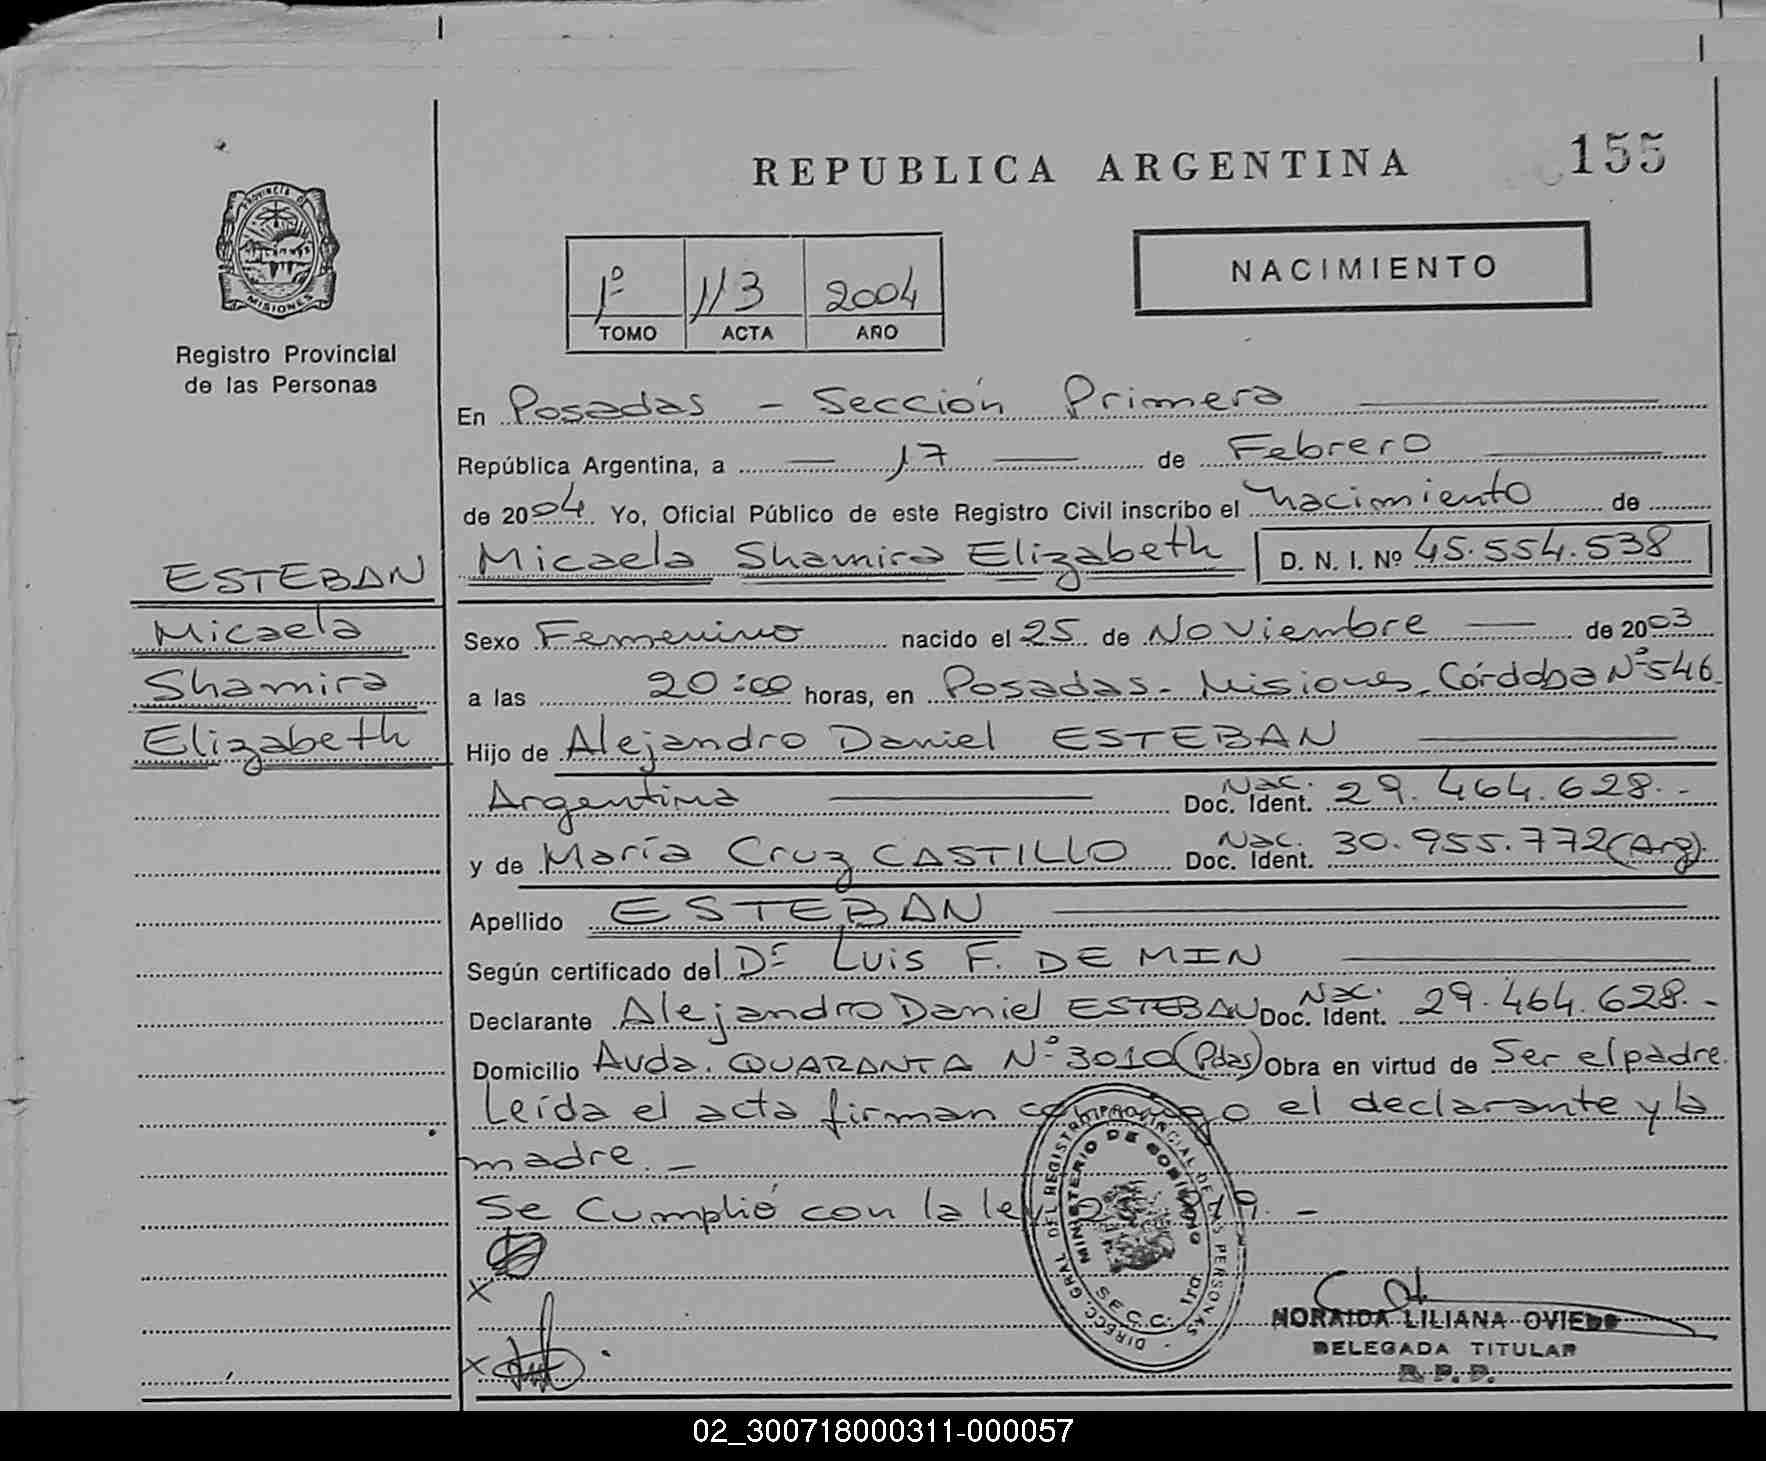 REPUBLICA ARGENTINA
155
PROVINCIA DE
MISIONES
Registro Provincial
de las Personas
1º 113 2004
TOMO ACTA AÑO
NACIMIENTO
En Posadas - Sección Primera
República Argentina, a 17 de Febrero
de 2004 Yo, Oficial Público de este Registro Civil inscribo el nacimiento de
Micaela Shamira Elizabeth D. N. I. Nº 45.554.538
ESTEBAN
Micaela
Shamira
Elizabeth
Sexo Femenino nacido el 25 de Noviembre de 2003
a las 20:00 horas, en Posadas - Misiones, Córdoba Nº 546
Hijo de Alejandro Daniel ESTEBAN
Argentina Nac. Doc. Ident. 29.464.628.-
y de María Cruz CASTILLO Nac. Doc. Ident. 30.955.772 (Arg).
Apellido ESTEBAN
Según certificado del Dr Luis F. DE MIN
Declarante Alejandro Daniel ESTEBAN Nac. Doc. Ident. 29.464.628.-
Domicilio Avda. QUARANTA Nº 3010 (Pdas) Obra en virtud de Ser el padre.
Leída el acta firman conmigo el declarante y la
madre.-
Se Cumplió con la ley
DIRECC. GRAL DEL REGISTRO PROVINCIAL DE LAS PERSONAS
MINISTERIO DE GOBIERNO
SECC. 1ra
X
X
NORAIDA LILIANA OVIEDO
DELEGADA TITULAR
R. P. P.
02_300718000311-000057